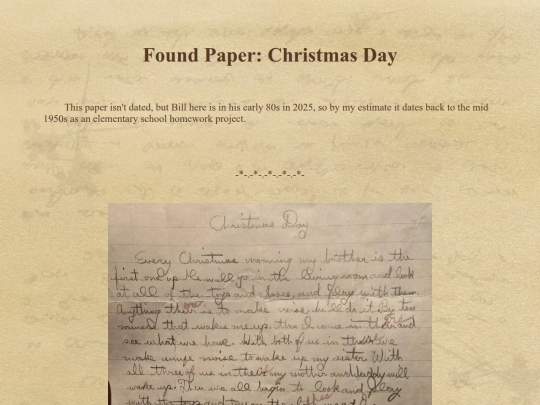 Found Paper: Christmas Day
This paper isn't dated, but Bill here is in his early 80s in 2025, so by my estimate it dates back to the mid
1950s as an elementary school homework project.
-*-.-*-.-*-.-*-.-*-
Christmas Day
Every Christmas morning my brother is the
first one up He will go in the living room and look
at all of the toys and shoes, and play with them
Anything their is to make noise, he'll do it By ten
that wakes me up, then I come in and
see what we have. With both of us in there we
make unuge noise to wake up my sister With
all three of us in there my mother and Daddy will
wake up. Then we all begin to look and play
with the toys and